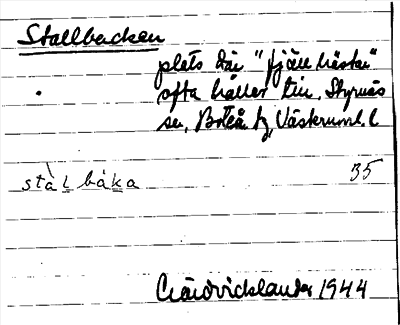 Stallbacken
plats där "fjällhästar"
ofta håller till. Styrnäs
sn, Boteå tg, Västernorrl. l
stàl båka 35
Nordvicklander 1944